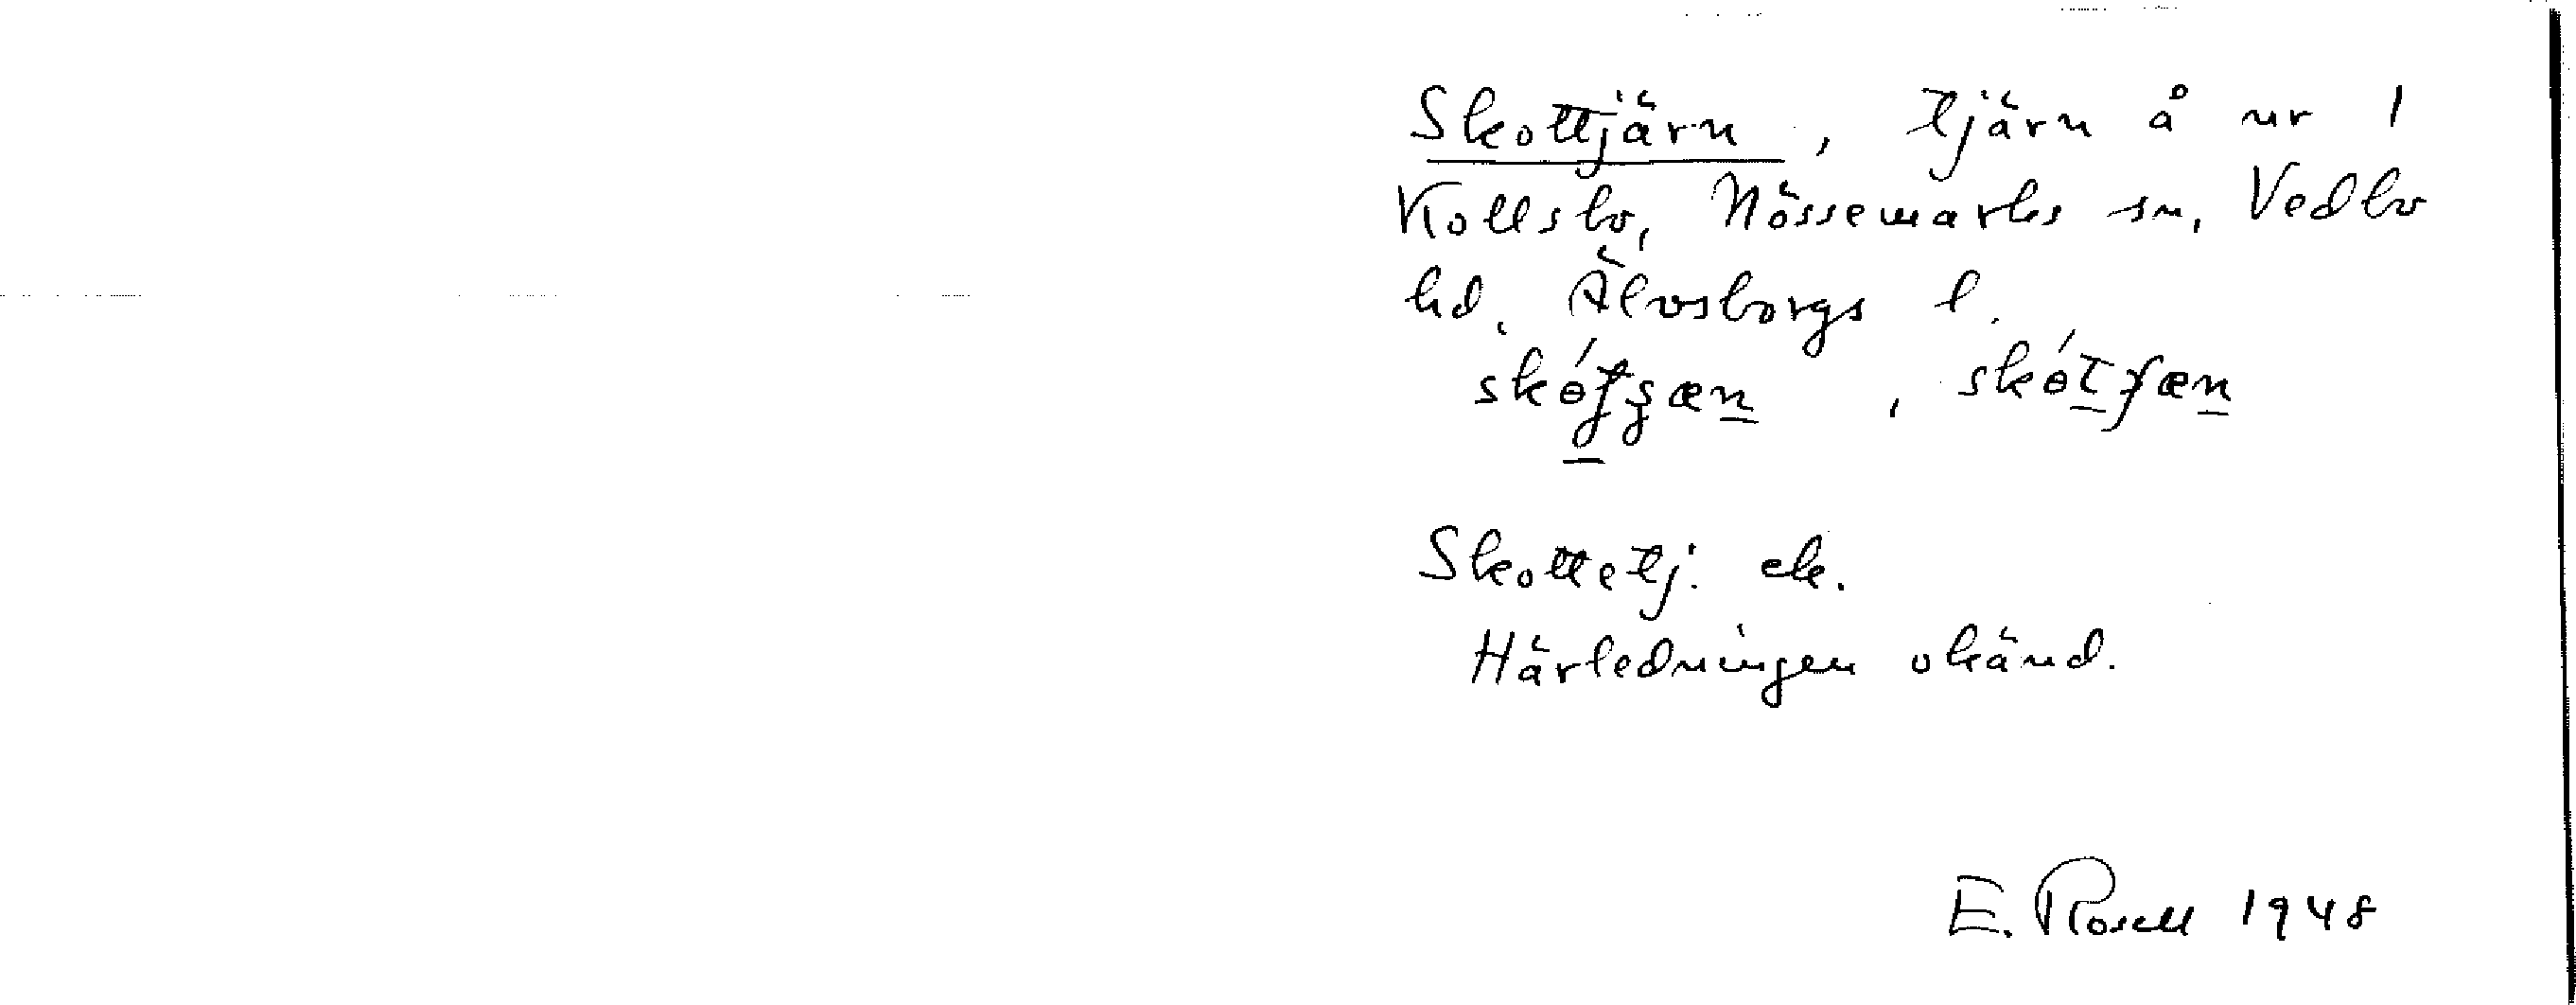 Skottjärn, tjärn å nr 1
Kollsbo, Nössemarks sn, Vedbo
hd, Älvsborgs l.
Skottetj. ek.
Härledningen okänd.
E. Rosell 1948